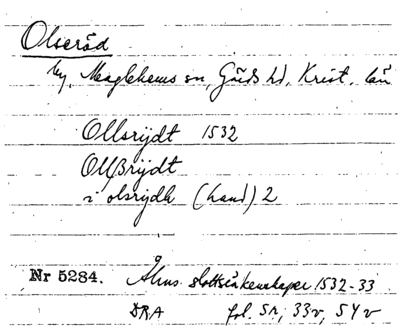 Olseröd
by, Maglehems sn, Gärds hd, Krist. län
Ollsrijdt 1532
Ollßrijdt
i olsrijdh (hand) 2
Nr 5284. Åhus slottsräkenskaper 1532-33
DRA fol. 5r, 33v, 54v